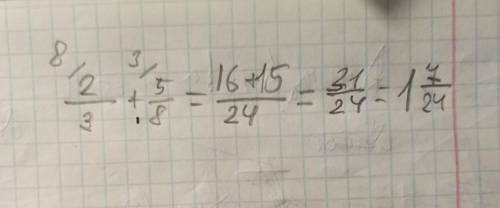 8/2/3 + 3/5/8 = 16+15/24 = 31/24 = 1 7/24